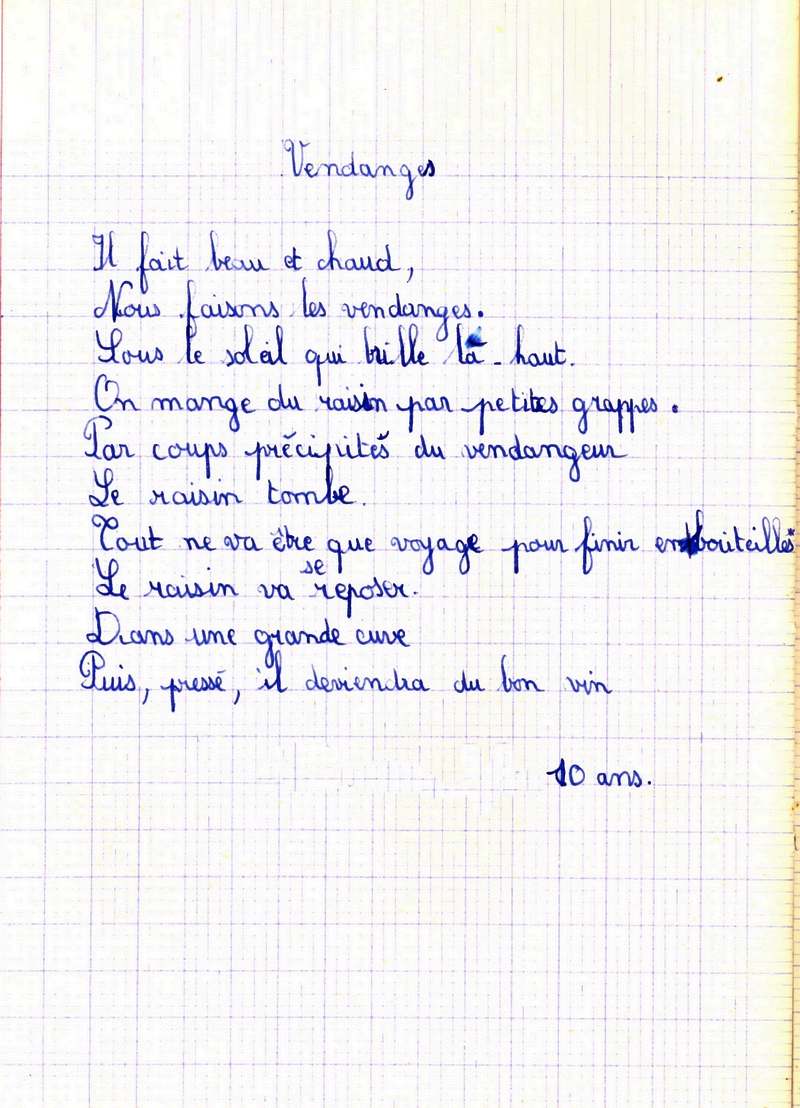 Vendanges
Il fait beau et chaud,
Nous faisons les vendanges.
Sous le soleil qui brille là-haut.
On mange du raisin par petites grappes.
Par coups précipités du vendangeur
Le raisin tombe.
Tout ne va être que voyage pour finir en bouteilles
Le raisin va se reposer.
Dans une grande cuve
Puis, pressé, il deviendra du bon vin
10 ans.